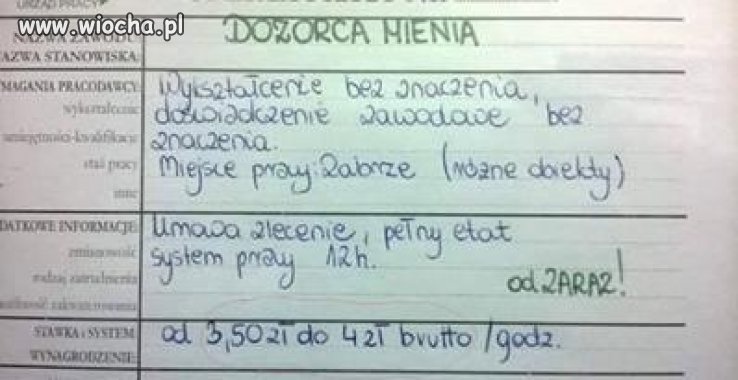 www.wiocha.pl
URZĄD PRACY
NAZWA ZAWODU
DOZORCA MIENIA
NAZWA STANOWISKA:
MAGANIA PRACODAWCY:
Wykształcenie bez znaczenia,
wykształcenie
doświadczenie zawodowe bez
umiejętności-kwalifikacje
znaczenia.
staż pracy
Miejsce pracy: Zabrze (różne obiekty)
inne
DATKOWE INFORMACJE:
Umowa zlecenie, pełny etat
zmianowość
system pracy 12h.
rodzaj zatrudnienia
od ZARAZ!
możliwość zakwaterowania
STAWKA i SYSTEM
od 3,50zł do 4zł brutto /godz.
WYNAGRODZENIE: